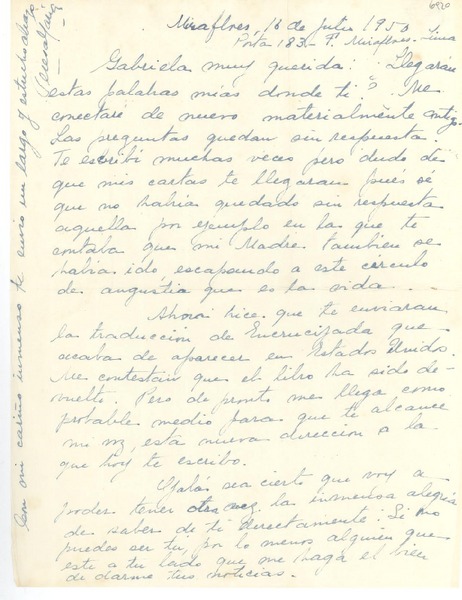 6920
Miraflores, 16 de Julio 1950
Porta 183 - F. Miraflores - Lima
Gabriela muy querida: ¿Llegarán
estas palabras mías donde ti? ¿Me
conectaré de nuevo materialmente contigo?
Las preguntas quedan sin respuesta.
Te escribí muchas veces pero dudo de
que mis cartas te llegaran pues sé
que no habría quedado sin respuesta
aquella por ejemplo en la que te
contaba que mi Madre también se
había ido, escapando a este círculo
de angustia que es la vida...
Ahora hice que te enviaran
la traducción de Encrucijada que
acaba de aparecer en Estados Unidos.
Me contestan que el libro ha sido de-
vuelto. Pero de pronto me llega como
probable medio para que te alcance
mi voz, esta nueva dirección a la
que hoy te escribo.
Ojalá sea cierto que voy a
poder tener otra vez la inmensa alegría
de saber de ti directamente. Si no
puedes ser tú, por lo menos alguien que
esté a tu lado que me haga el bien
de darme tus noticias.
Con mi cariño inmenso te envío un largo y estrecho abrazo